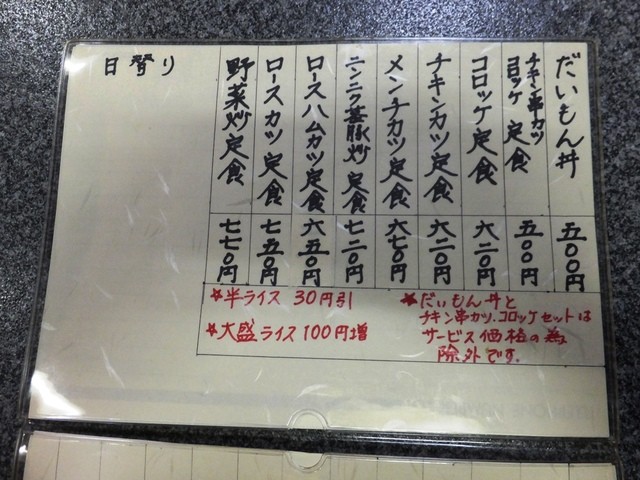 だいもん丼 五〇〇円
チキン串カツ
コロッケ 定食 五〇〇円
コロッケ定食 六二〇円
チキンカツ定食 六二〇円
メンチカツ定食 六七〇円
ニンニク茎豚炒定食 七二〇円
ロースハムカツ定食 六五〇円
ロースカツ定食 七五〇円
野菜炒定食 七七〇円
日替り
★だいもん丼と
チキン串カツ.コロッケセットは
サービス価格の為
除外です。
★半ライス 30円引
★大盛ライス 100円増